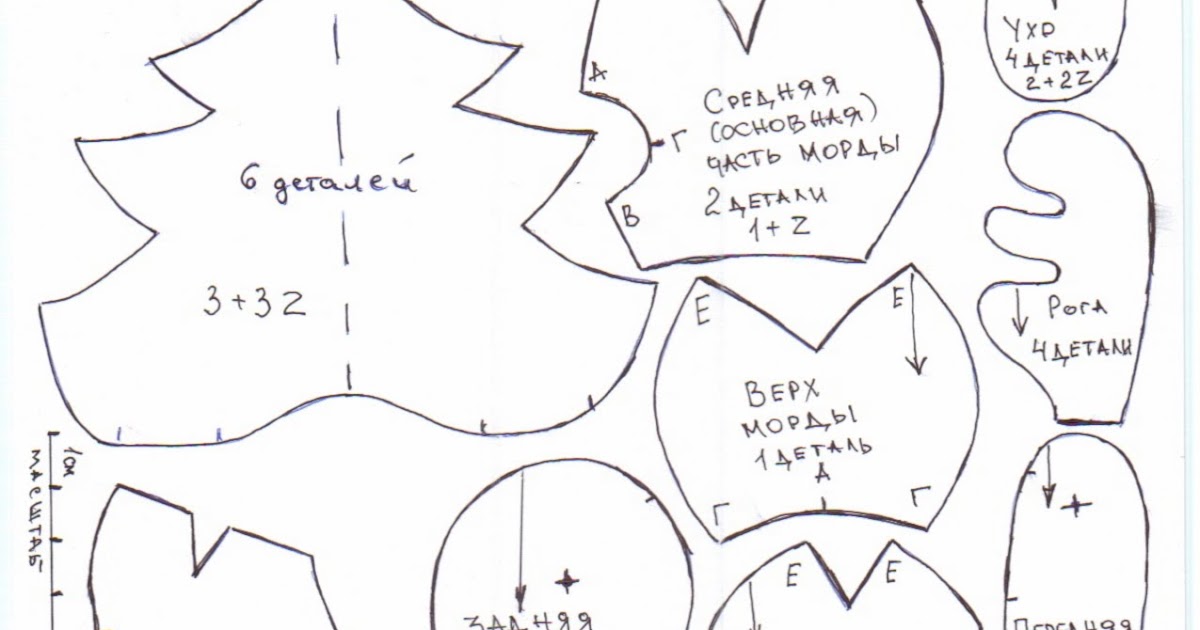 6 деталей
3+3Z
А
Г
В
СРЕДНЯЯ
(ОСНОВНАЯ)
ЧАСТЬ МОРДЫ
2 ДЕТАЛИ
1+Z
УХО
4 ДЕТАЛИ
2+2Z
Рога
4 ДЕТАЛИ
Е
Е
ВЕРХ
МОРДЫ
1 ДЕТАЛЬ
А
Г
Г
1см
МАСШТАБ
ЗАДНЯЯ
Е
Е
ПЕРЕДНЯЯ